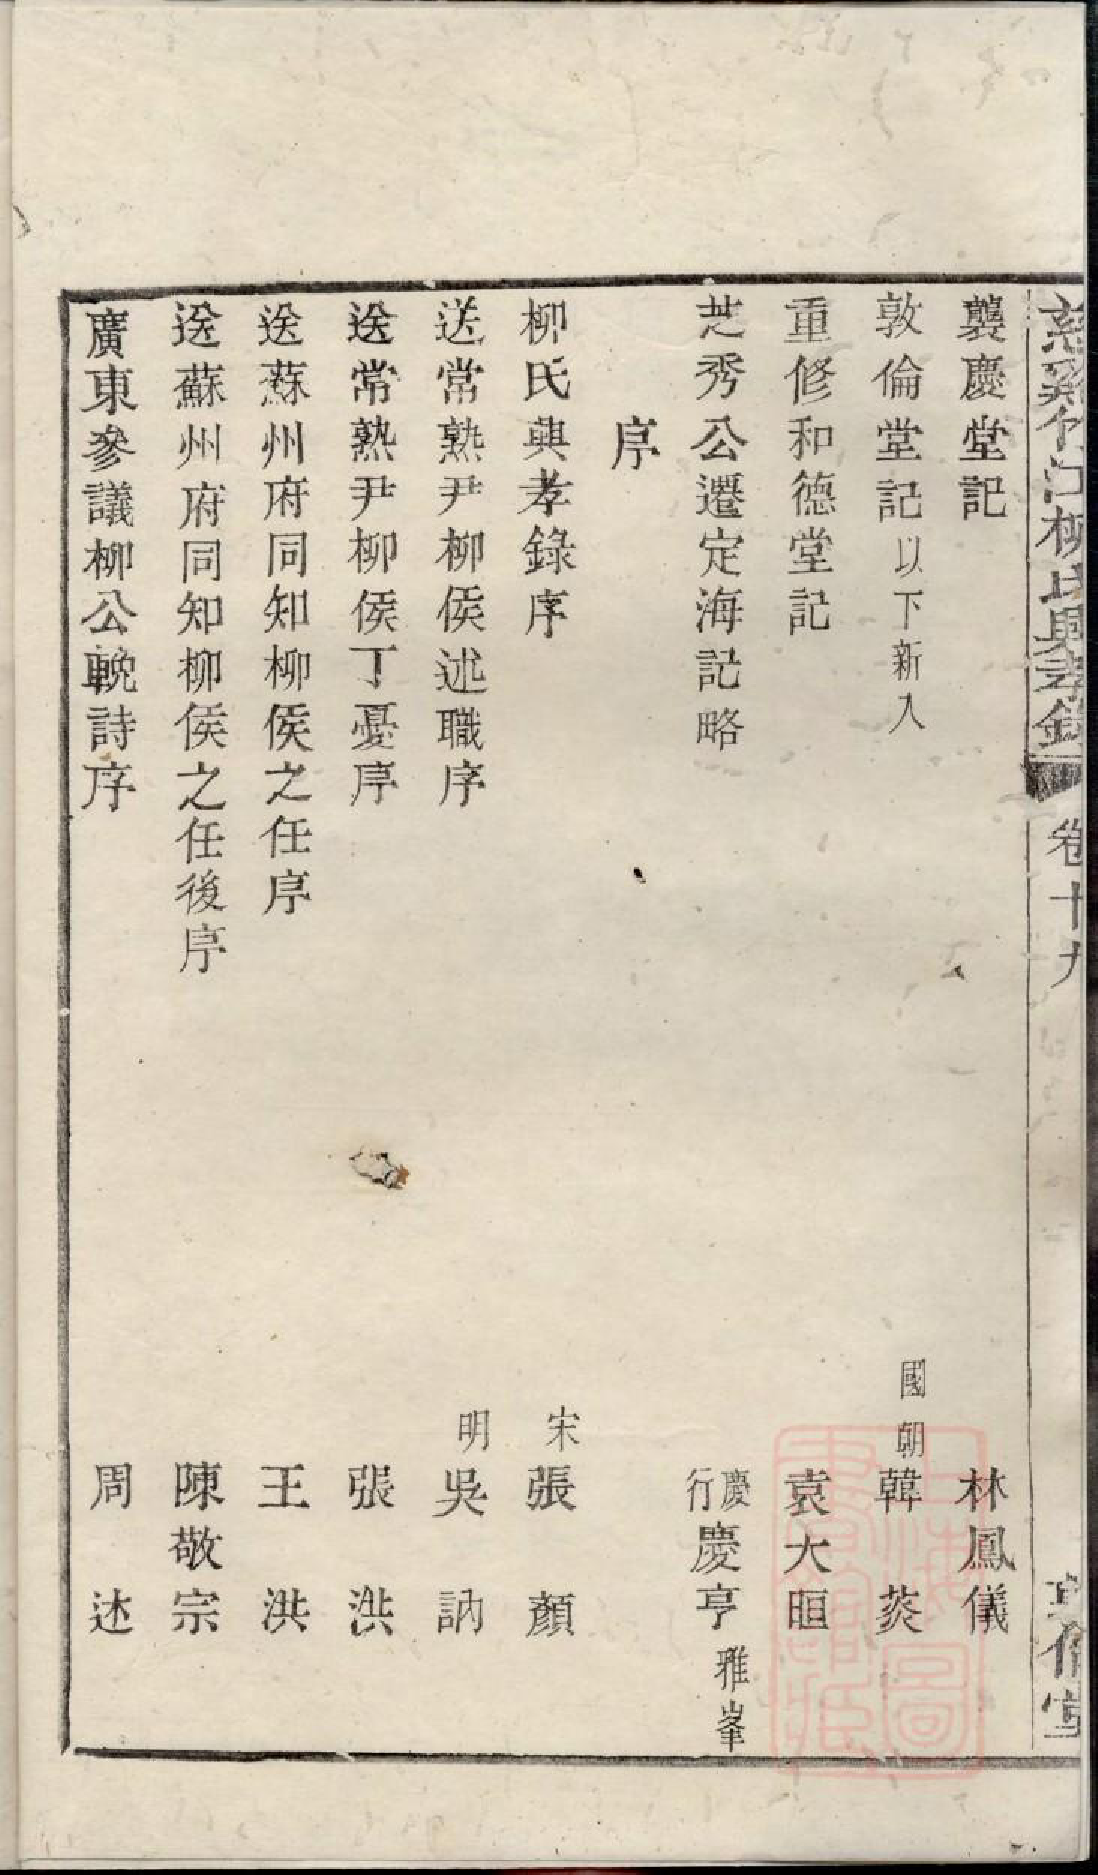 慈谿竹江柳氏興孝錄 卷十九 倫堂
龔慶堂記 林鳳儀
敦倫堂記 以下新入 國朝 韓菼
重修和德堂記 袁大
芝秀公遷定海記略 慶行 慶亨 雅峯
序
柳氏興孝錄序 宋 張顏
送常熟尹柳侯述職序 明 吳訥
送常熟尹柳侯丁憂序 張洪
送蘇州府同知柳侯之任序 王洪
送蘇州府同知柳侯之任後序 陳敬宗
廣東參議柳公輓詩序 周述